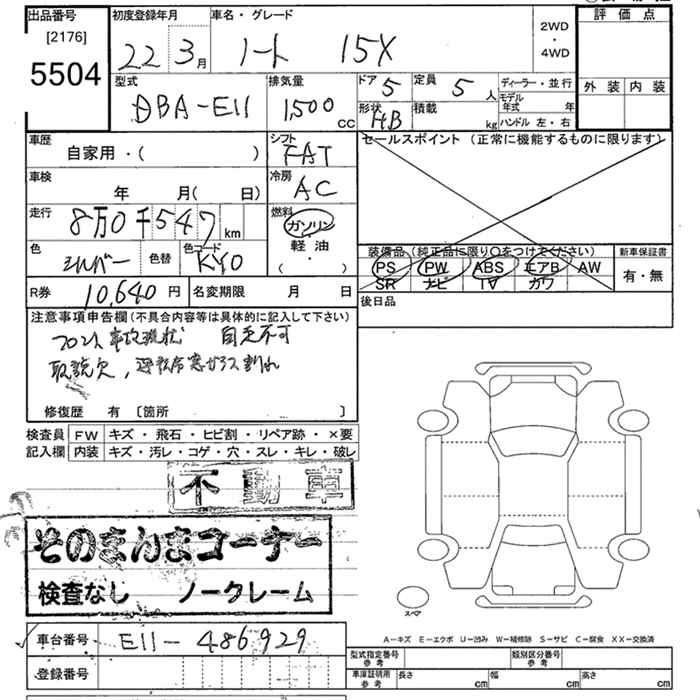 出品番号
[2176]
5504
初度登録年月
22 3月
車名・グレード
ノート 15X
2WD
・
4WD
評価点
外装 内装
型式
DBA-E11
排気量
1,500 cc
ドア 5
定員 5人
形状 HB
積載 kg
ディーラー・並行
モデル年式 年
ハンドル 左・右
車歴
自家用・( )
シフト
FAT
セールスポイント(正常に機能するものに限ります)
車検
年 月( 日)
冷房
AC
走行
8万0千547km
燃料
ガソリン
軽油
( ・ )
色
シルバー
色替
色コード
KY0
装備品(純正品に限り〇をつけてください)
PS PW ABS エアB AW
SR ナビ TV カワ
新車保証書
有・無
R券 10,640円
名変期限 月 日
後日品
注意事項申告欄(不具合内容等は具体的に記入して下さい)
フロント事故現状 自走不可
取説欠,運転席窓ガラス割れ
修復歴 有 〔箇所 〕
検査員記入欄
FW キズ・飛石・ヒビ割・リペア跡・×要
内装 キズ・汚レ・コゲ・穴・スレ・キレ・破レ
不動車
そのまんまコーナー
検査なし ノークレーム
スペア
A-キズ E-エクボ U-凹み W-補修跡 S-サビ C-腐食 XX-交換済
車台番号 E11-486929
登録番号
型式指定番号 参考
類別区分番号 参考
車庫証明用 参考
長さ cm 幅 cm 高さ cm